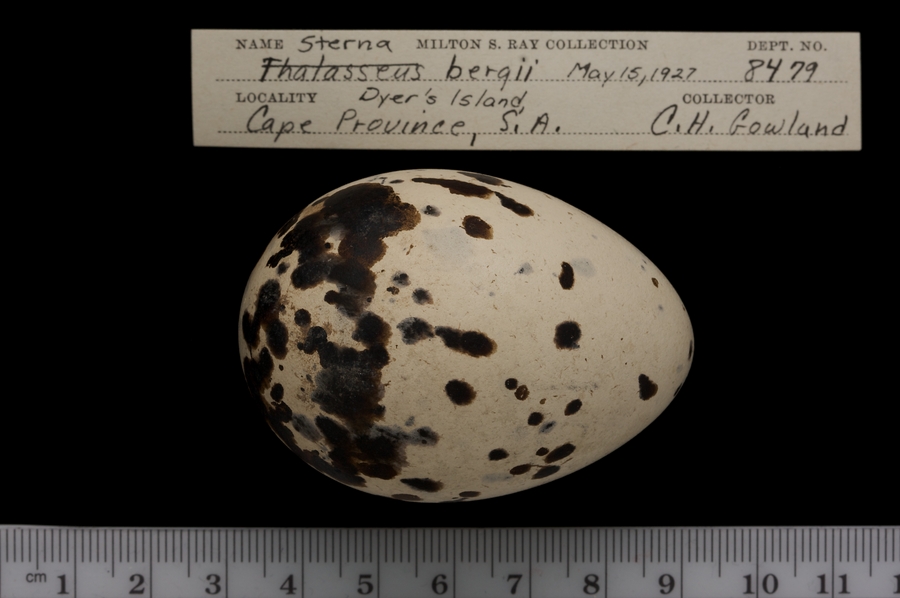 NAME Sterna MILTON S. RAY COLLECTION DEPT. NO.
Thalasseus bergii May 15, 1927 8479
LOCALITY Dyer's Island, COLLECTOR
Cape Province, S.A. C.H. Gowland
cm 1 2 3 4 5 6 7 8 9 10 11 1